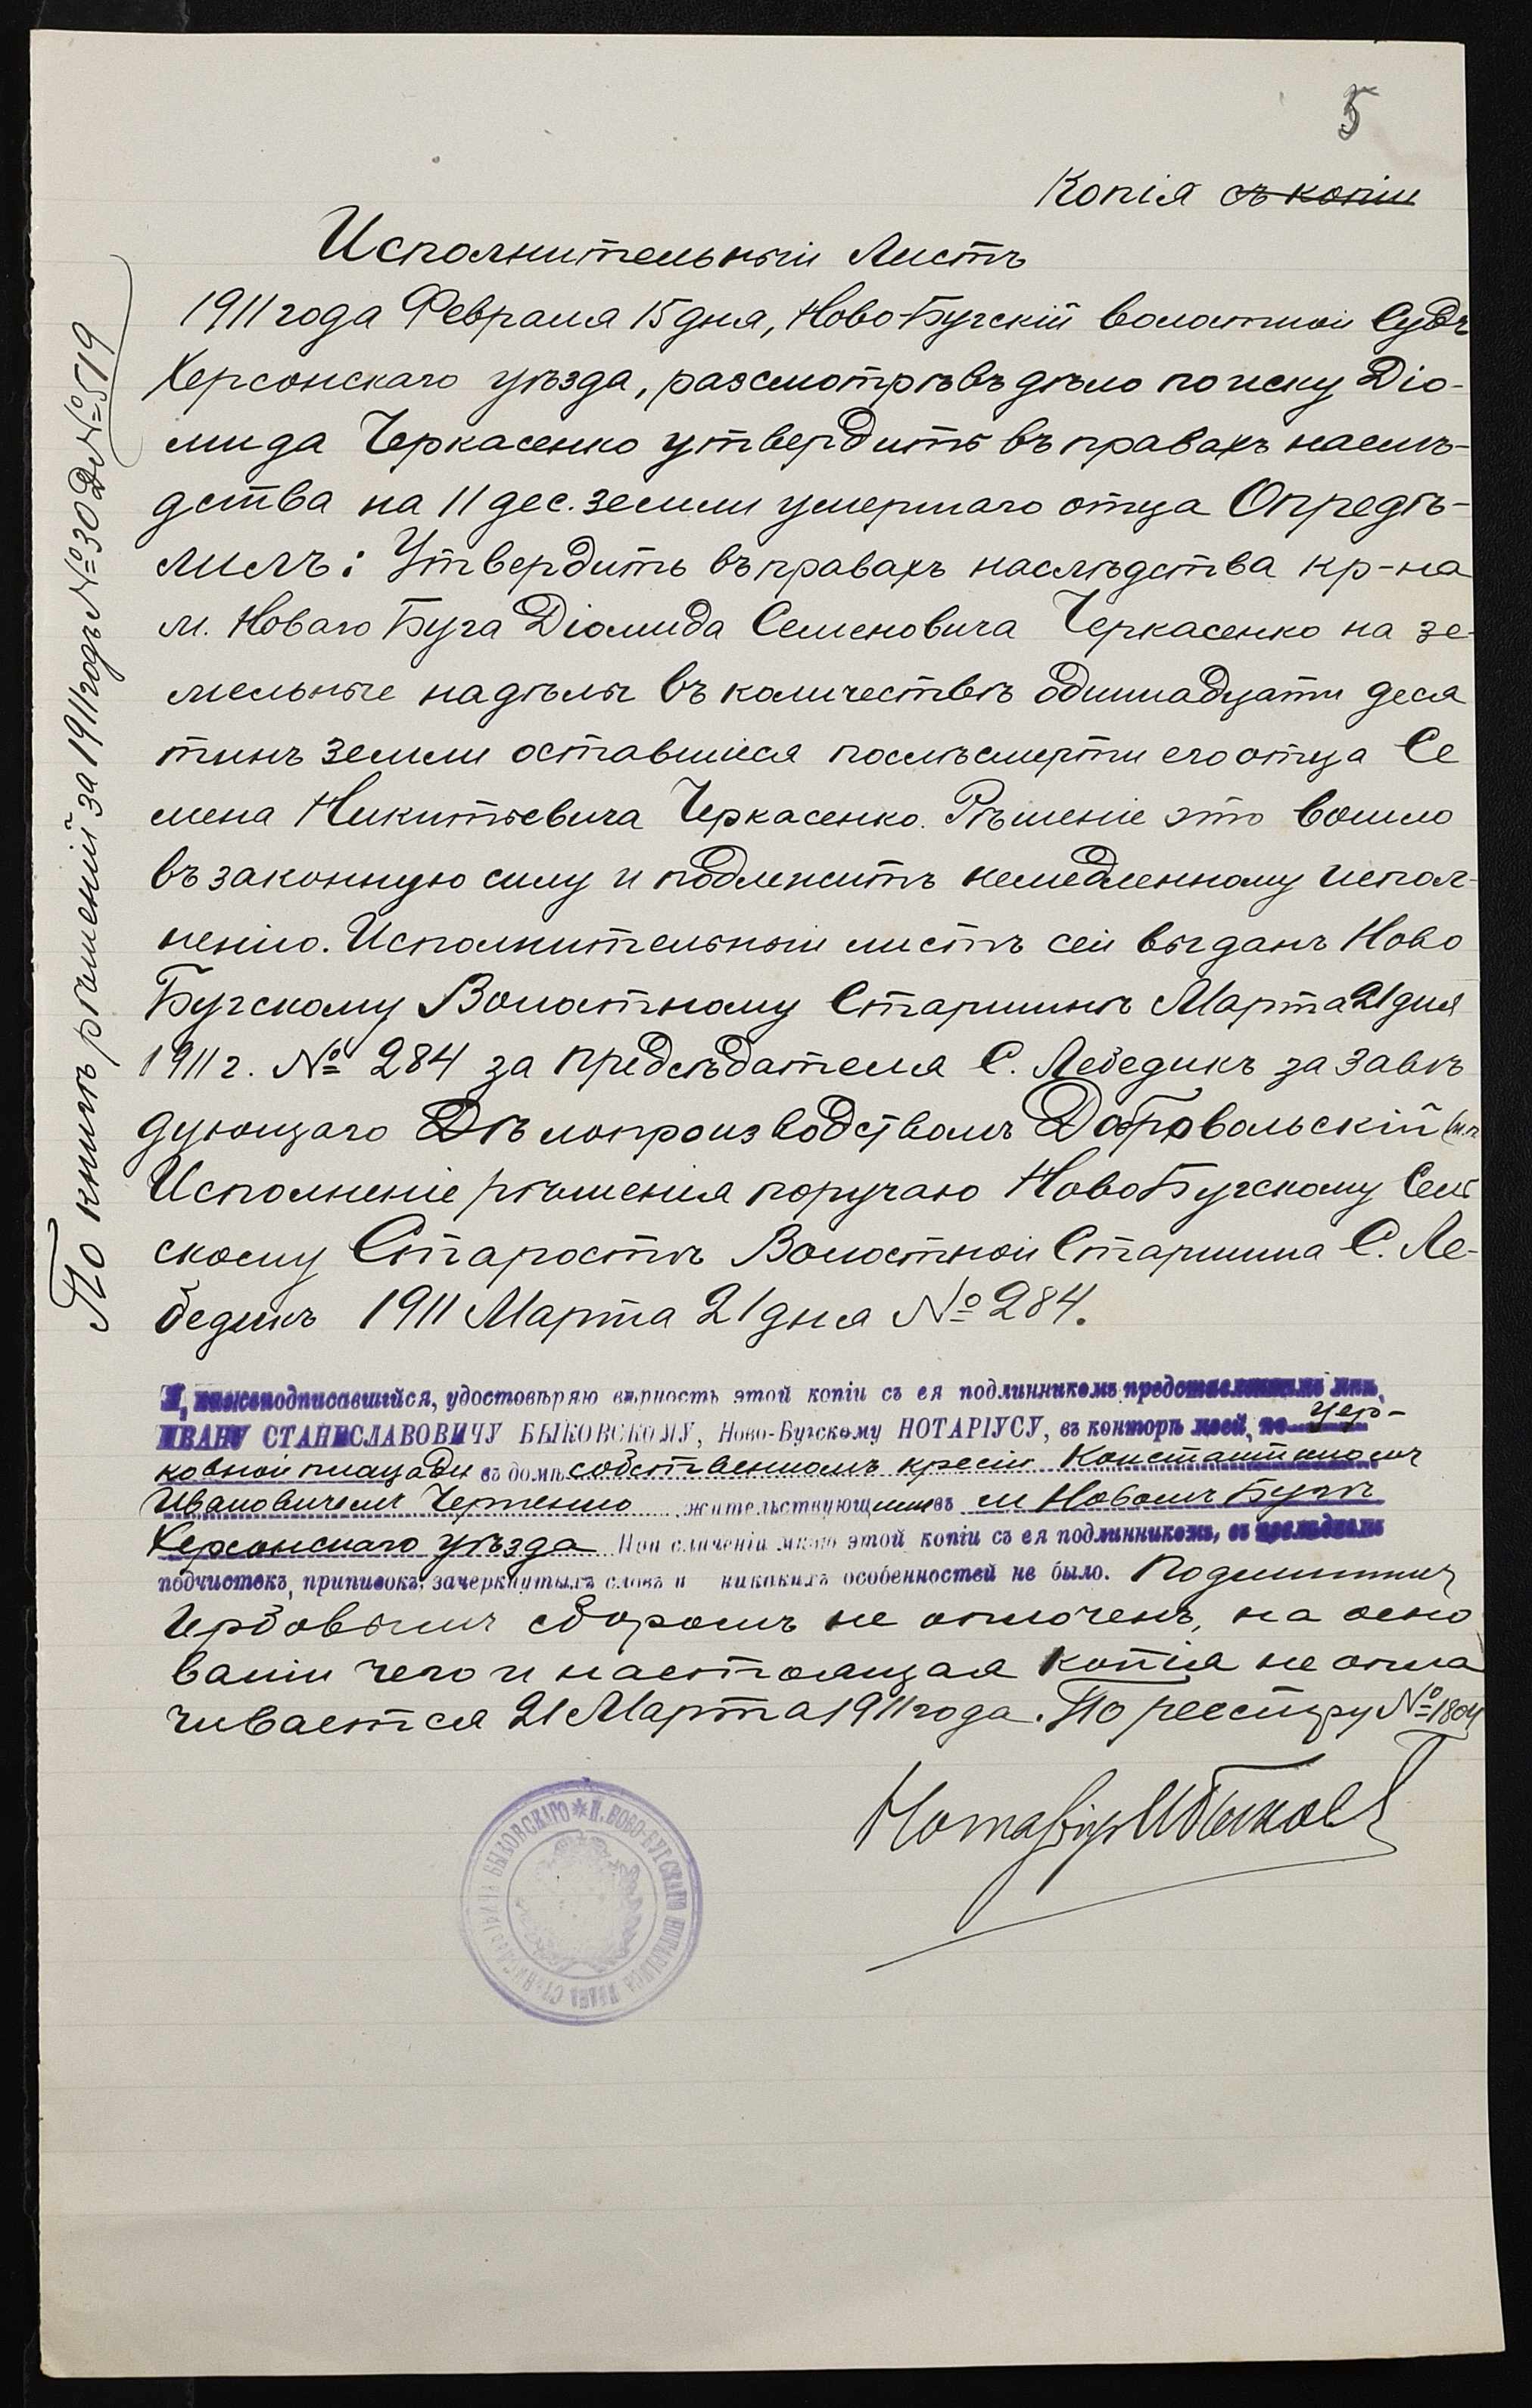 5
Копія съ копіи
Исполнительный Листъ
1911 года Февраля 15 дня, Ново-Бугскій волостной Судъ
Херсонскаго уѣзда, разсмотрѣвъ дѣло по иску Діо-
мида Черкасенко утвердить въ правахъ наслѣ-
дства на 11 дес. земли умершаго отца Опредѣ-
лилъ: Утвердить въ правахъ наслѣдства кр-на
м. Новаго Буга Діомида Семеновича Черкасенко на зе-
мельные надѣлы въ количествѣ одиннадцати деся
тинъ земли оставшіеся послѣ смерти его отца Се
мена Никитьевича Черкасенко. Рѣшеніе это вошло
въ законную силу и подлежитъ немедленному испол-
ненію. Исполнительный листъ сей выданъ Ново
Бугскому Волостному Старшинѣ Марта 21 дня
1911 г. № 284 за предсѣдателя С. Лебедикъ за Завѣ
дующаго Дѣлопроизводствомъ Добровольскій
Исполненіе рѣшенія поручаю НовоБугскому Сель
скому Старостѣ Волостной Старшина С. Ле-
бедикъ 1911 Марта 21 дня № 284.
По книгѣ рѣшеній за 1911 годъ № 30 Д № 519
Я, нижеподписавшійся, удостовѣряю вѣрность этой копіи съ ея подлинникомъ представленнымъ мнѣ,
ИВАНУ СТАНИСЛАВОВИЧУ БЫКОВСКОМУ, Ново-Бугскому НОТАРІУСУ, въ конторѣ моей, по Цер-
ковной площади въ домѣ собственномъ кресн Константиномъ
Ивановичемъ жительствующимъ въ м Новомъ Бугѣ
Херсонскаго уѣзда При сличеніи мною этой копіи съ ея подлинникомъ, въ послѣднемъ
подчистокъ, приписокъ, зачеркнутыхъ словъ и никакихъ особенностей не было. Подлинникъ
Гербовымъ сборомъ не оплоченъ, на осно
ваніи чего и настоящая копія не опла
чивается 21 Марта 1911 года. По реестру № 1804
Нотаріусъ И Быковскій
* П. НОВО-БУГСКАГО НОТАРІУСА ИВАНА СТАНИСЛАВОВИЧА БЫКОВСКАГО